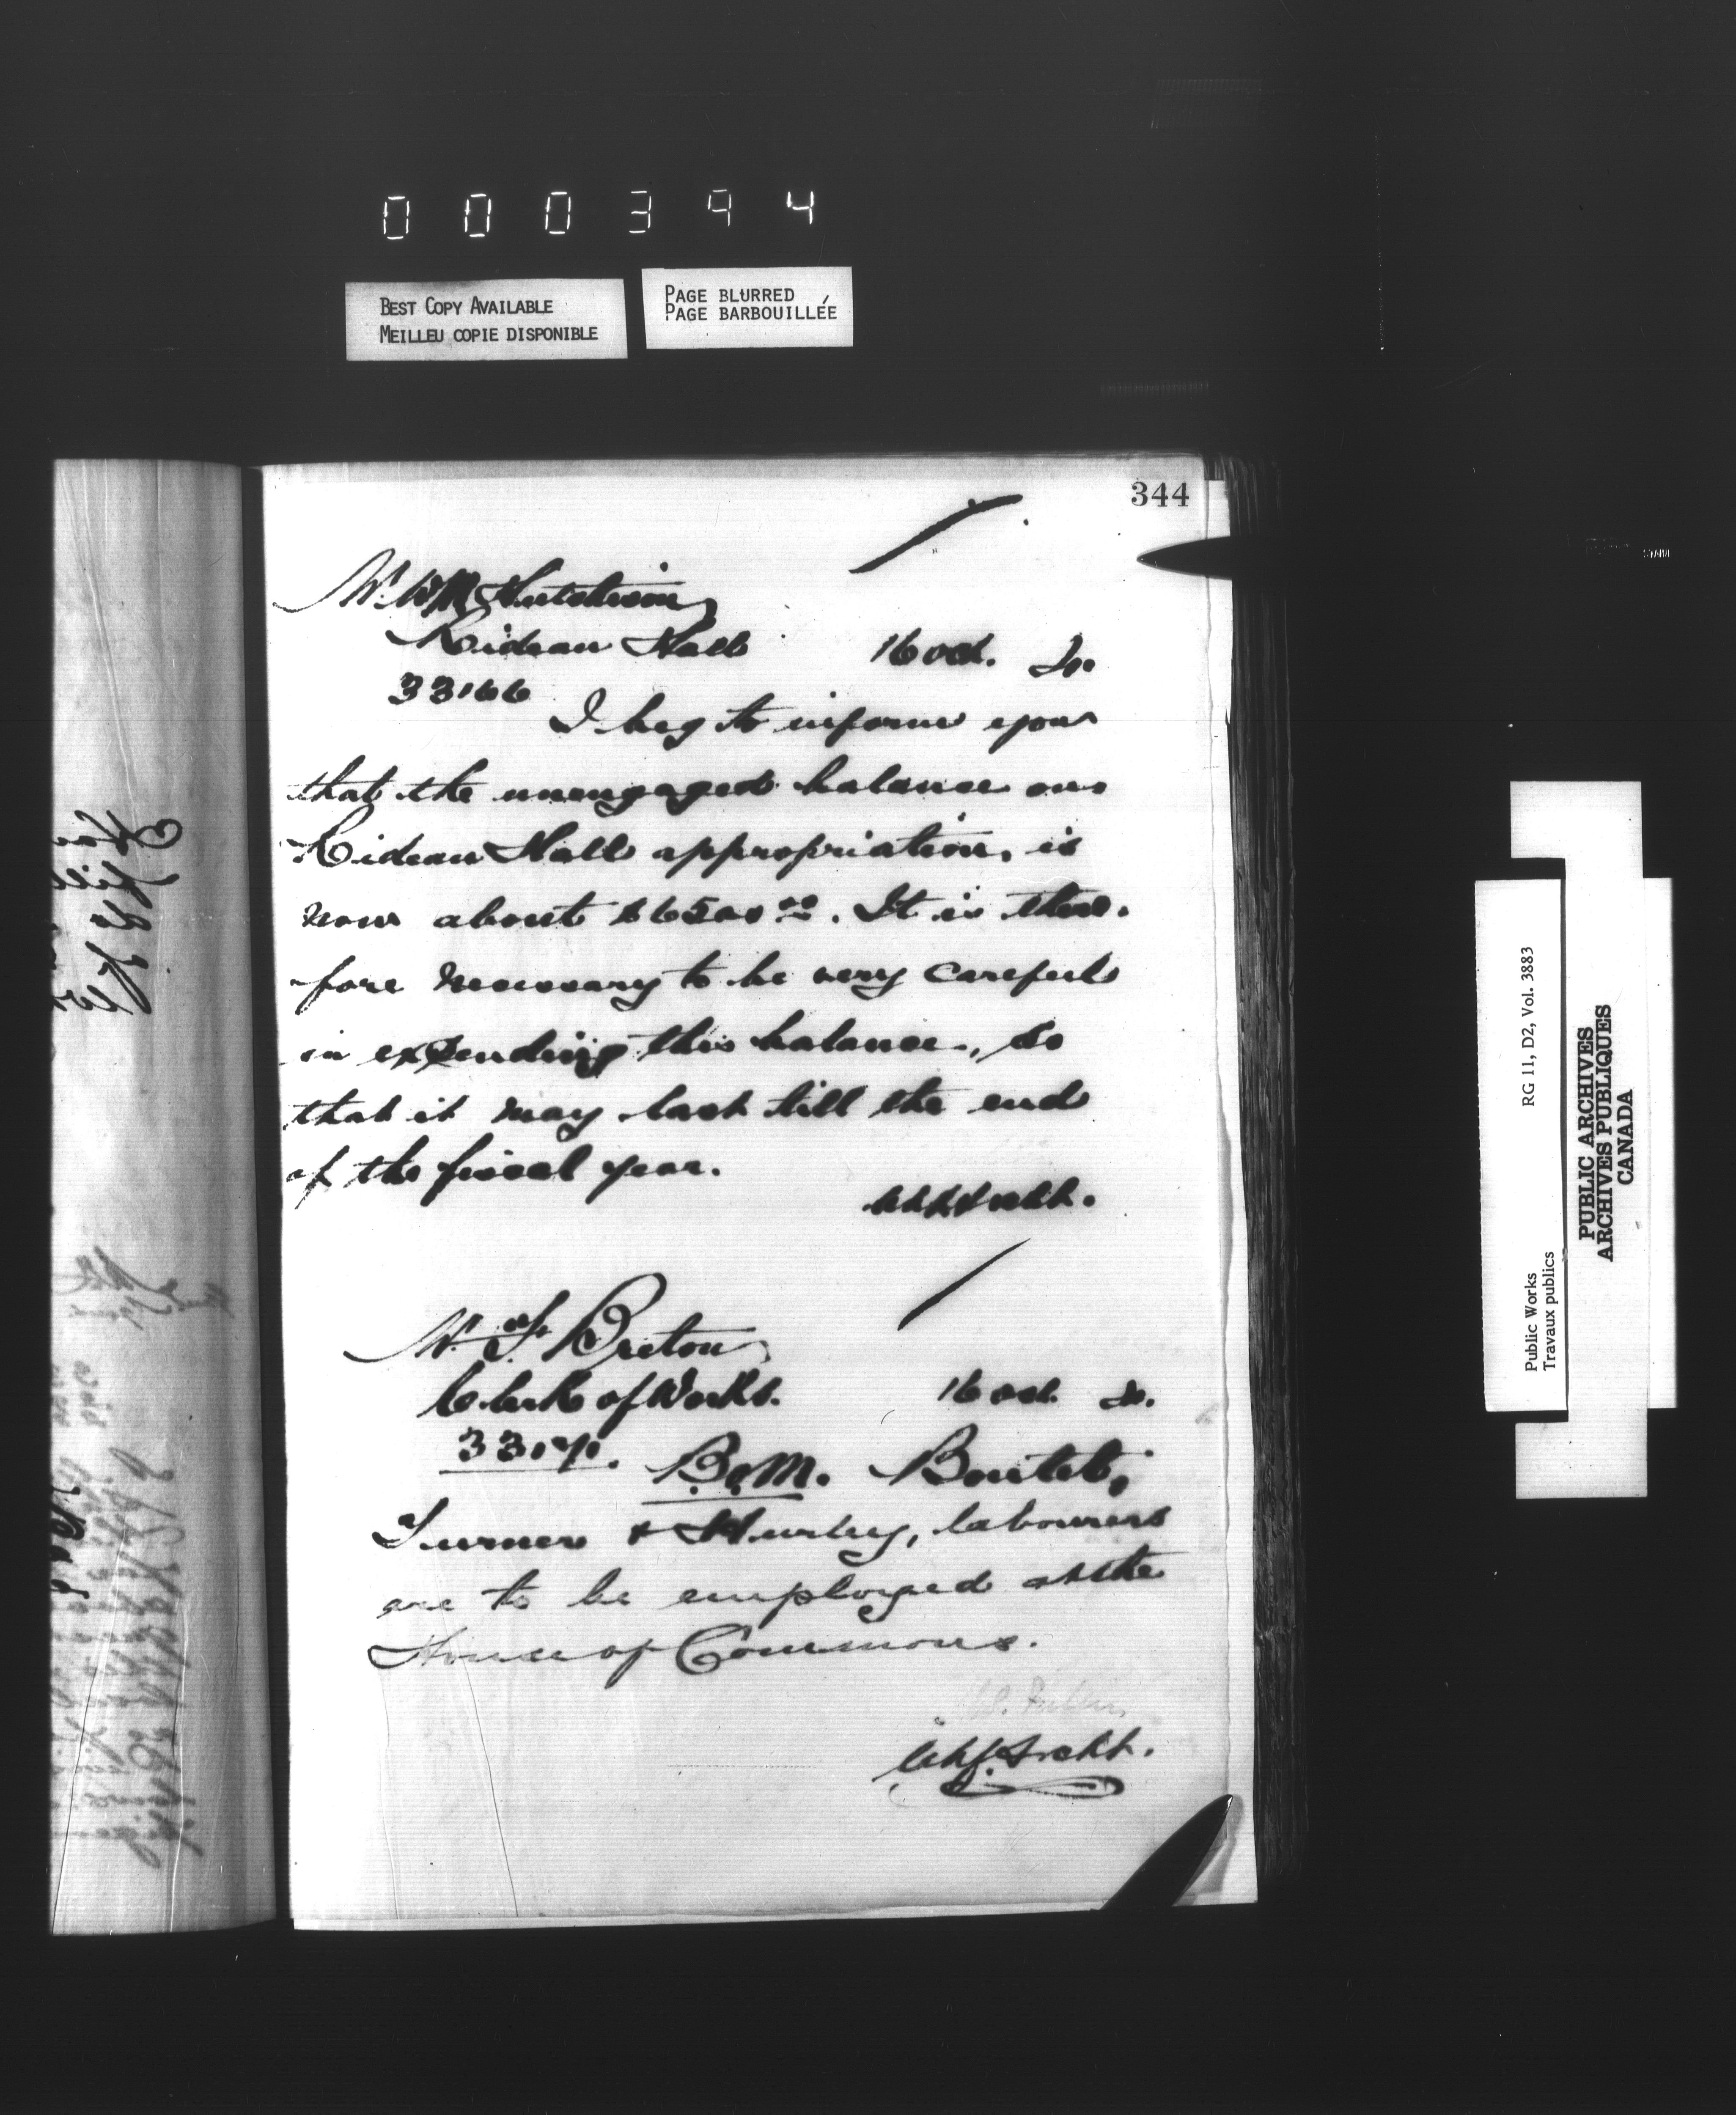 000394
BEST COPY AVAILABLE
MEILLEU COPIE DISPONIBLE
PAGE BLURRED
PAGE BARBOUILLÉE
344
Mr. WM Hutchison
Rideau Hall 16 Oct.
33166
I beg to inform you
that the unengaged balance on
Rideau Hall appropriation, is
now about $6500 00. It is there-
fore necessary to be very careful
in expending this balance, so
that it may last till the end
of the fiscal year.
Ch Archt.
Mr. Breton
Clerk of Works. 16 Oct.
B. of M. Boutet,
Turner & Hurley, labourers
are to be employed at the
House of Commons.
Fuller
Chf Archt.
Public Works
Travaux publics
RG 11, D2, Vol. 3883
PUBLIC ARCHIVES
ARCHIVES PUBLIQUES
CANADA